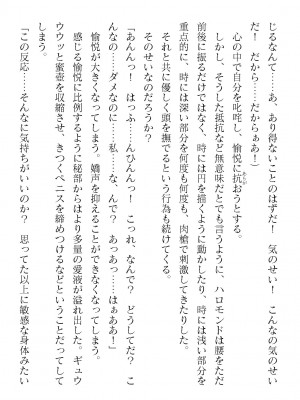 じるなんて……あ、あり得ないことのはずだ！　気のせい！　こんなの気のせい
だ！　だから……だからぁあ！」
　心の中で自分を叱咤し、愉悦に抗おうとする。
　しかし、そうした抵抗など無意味だとでも言うように、ハロモンドは腰をただ
前後に振るだけではなく、時には円を描くように動かしたり、時には浅い部分を
重点的に、時には深い部分を何度も何度も、肉槍で刺激してきたりした。
　それと共に優しく頭を撫でるという行為も続けてくる。
　そのせいなのだろうか？
「あんんっ！　はっふ……んひんんっ！　こっれ、なんで？　どうしてだ？　こ
んなの……ダメなのに……私……な、んで？　あっあっ……はぁああ！」
　愉悦が大きくなってしまう。嬌声を抑えることができなくなってしまう。
　感じる愉悦に比例するように秘部からはより多量の愛液が溢れ出した。ギュウ
ウウッと蜜壺を収縮させ、きつくペニスを締めつけるなどということだってして
しまう。
「この反応……そんなに気持ちがいいのか？　思ってた以上に敏感な身体みたい